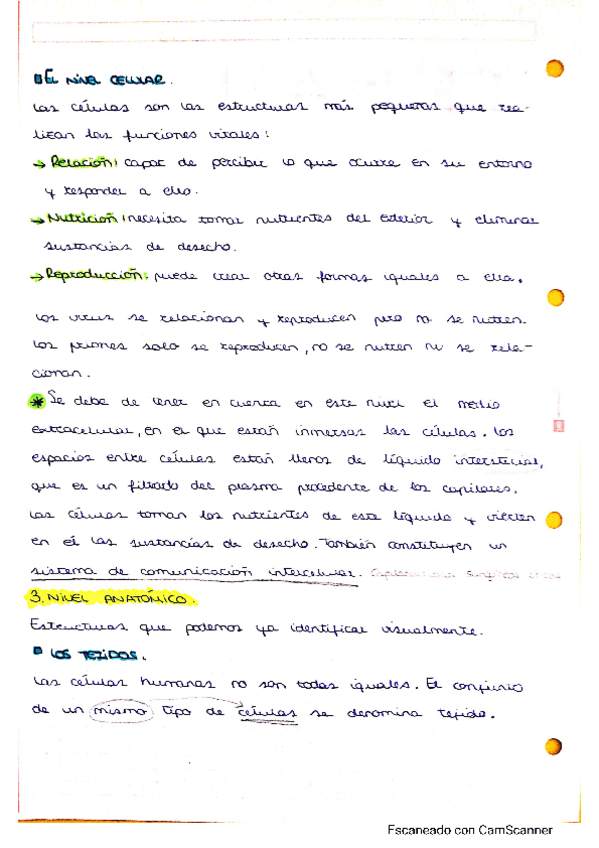 EL NIVEL CELULAR.
Las células son las estructuras más pequeñas que rea-
lizan las funciones vitales:
→ Relación: capaz de percibir lo que ocurre en su entorno
y responder a ello.
→ Nutrición: necesita tomar nutrientes del exterior y eliminar
sustancias de desecho.
→ Reproducción: puede crear otras formas iguales a ella.
Los virus se relacionan y reproducen pero no se nutren.
Los priones solo se reproducen, no se nutren ni se rela-
cionan.
* Se debe de tener en cuenta en este nivel el medio
extracelular, en el que están inmersas las células. Los
espacios entre células están llenos de líquido intersticial,
que es un filtrado del plasma procedente de los capilares.
Las células toman los nutrientes de este líquido y vierten
en él las sustancias de desecho. También constituyen un
sistema de comunicación intercelular.
3. NIVEL ANATÓMICO.
Estructuras que podemos ya identificar visualmente.
LOS TEJIDOS.
Las células humanas no son todas iguales. El conjunto
de un mismo tipo de células se denomina tejido.
Escaneado con CamScanner